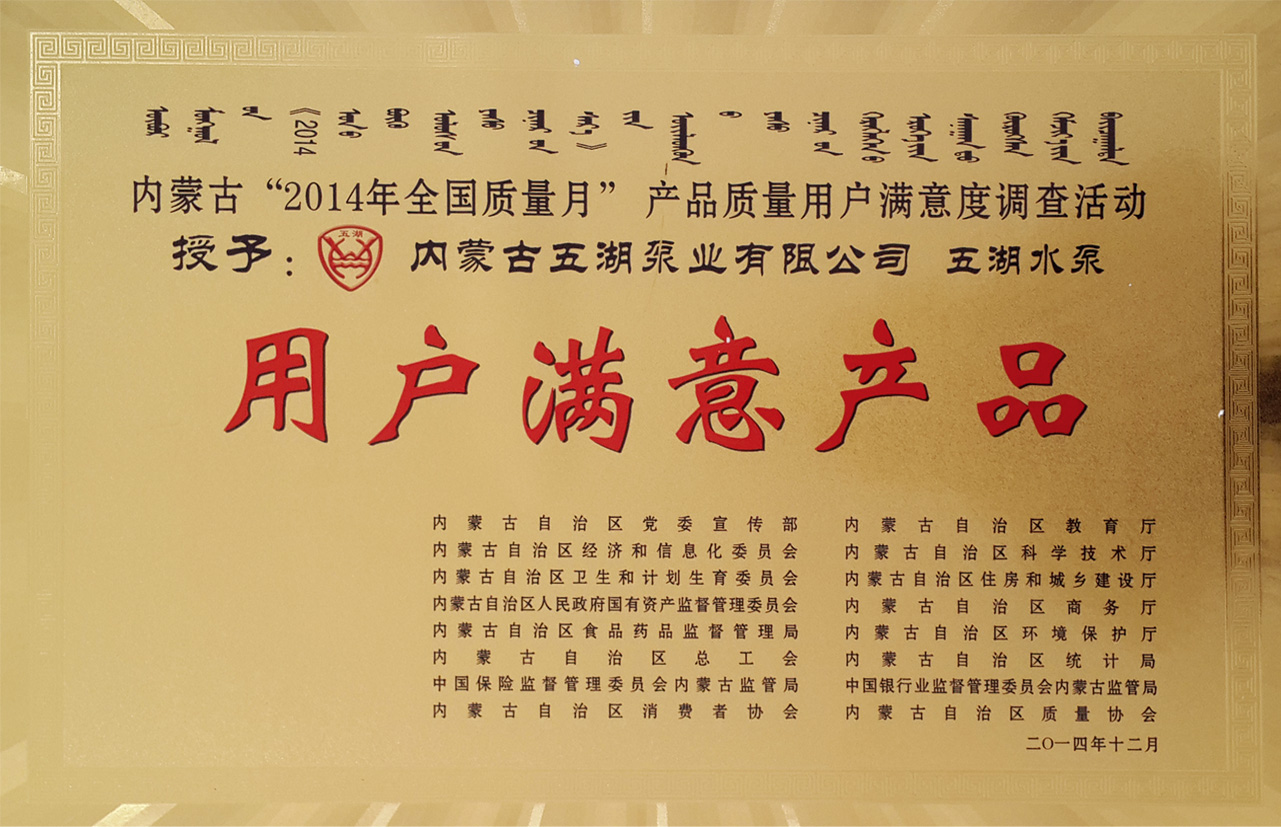 《2014 》
内蒙古“2014年全国质量月”产品质量用户满意度调查活动
授予： 五湖 内蒙古五湖泵业有限公司 五湖水泵
用户满意产品
内蒙古自治区党委宣传部 内蒙古自治区教育厅
内蒙古自治区经济和信息化委员会 内蒙古自治区科学技术厅
内蒙古自治区卫生和计划生育委员会 内蒙古自治区住房和城乡建设厅
内蒙古自治区人民政府国有资产监督管理委员会 内蒙古自治区商务厅
内蒙古自治区食品药品监督管理局 内蒙古自治区环境保护厅
内蒙古自治区总工会 内蒙古自治区统计局
中国保险监督管理委员会内蒙古监管局 中国银行业监督管理委员会内蒙古监管局
内蒙古自治区消费者协会 内蒙古自治区质量协会
二〇一四年十二月